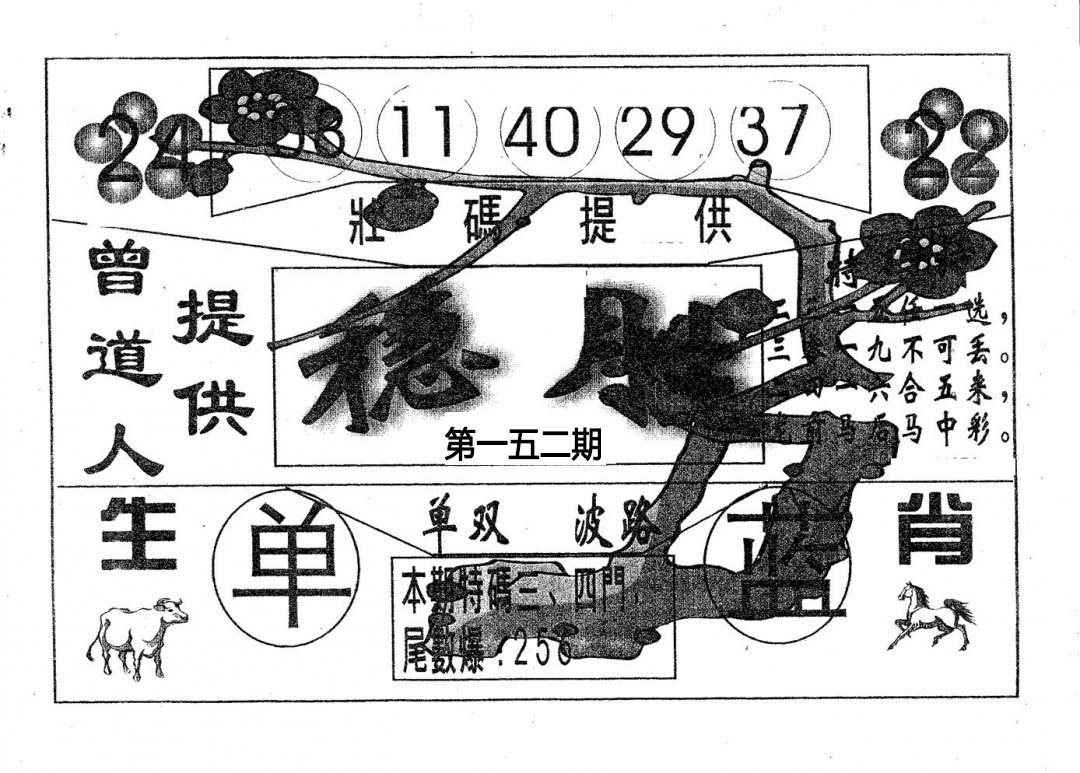 24 03 11 40 29 37 22
壯碼提供
曾道人
提供
特
选，
三 一九不可丢。
六合五来，
马后马中彩。
稳
第一五二期
生
单
单双 波路
蓝
肖
本期特碼三、四門.
尾數爆:256